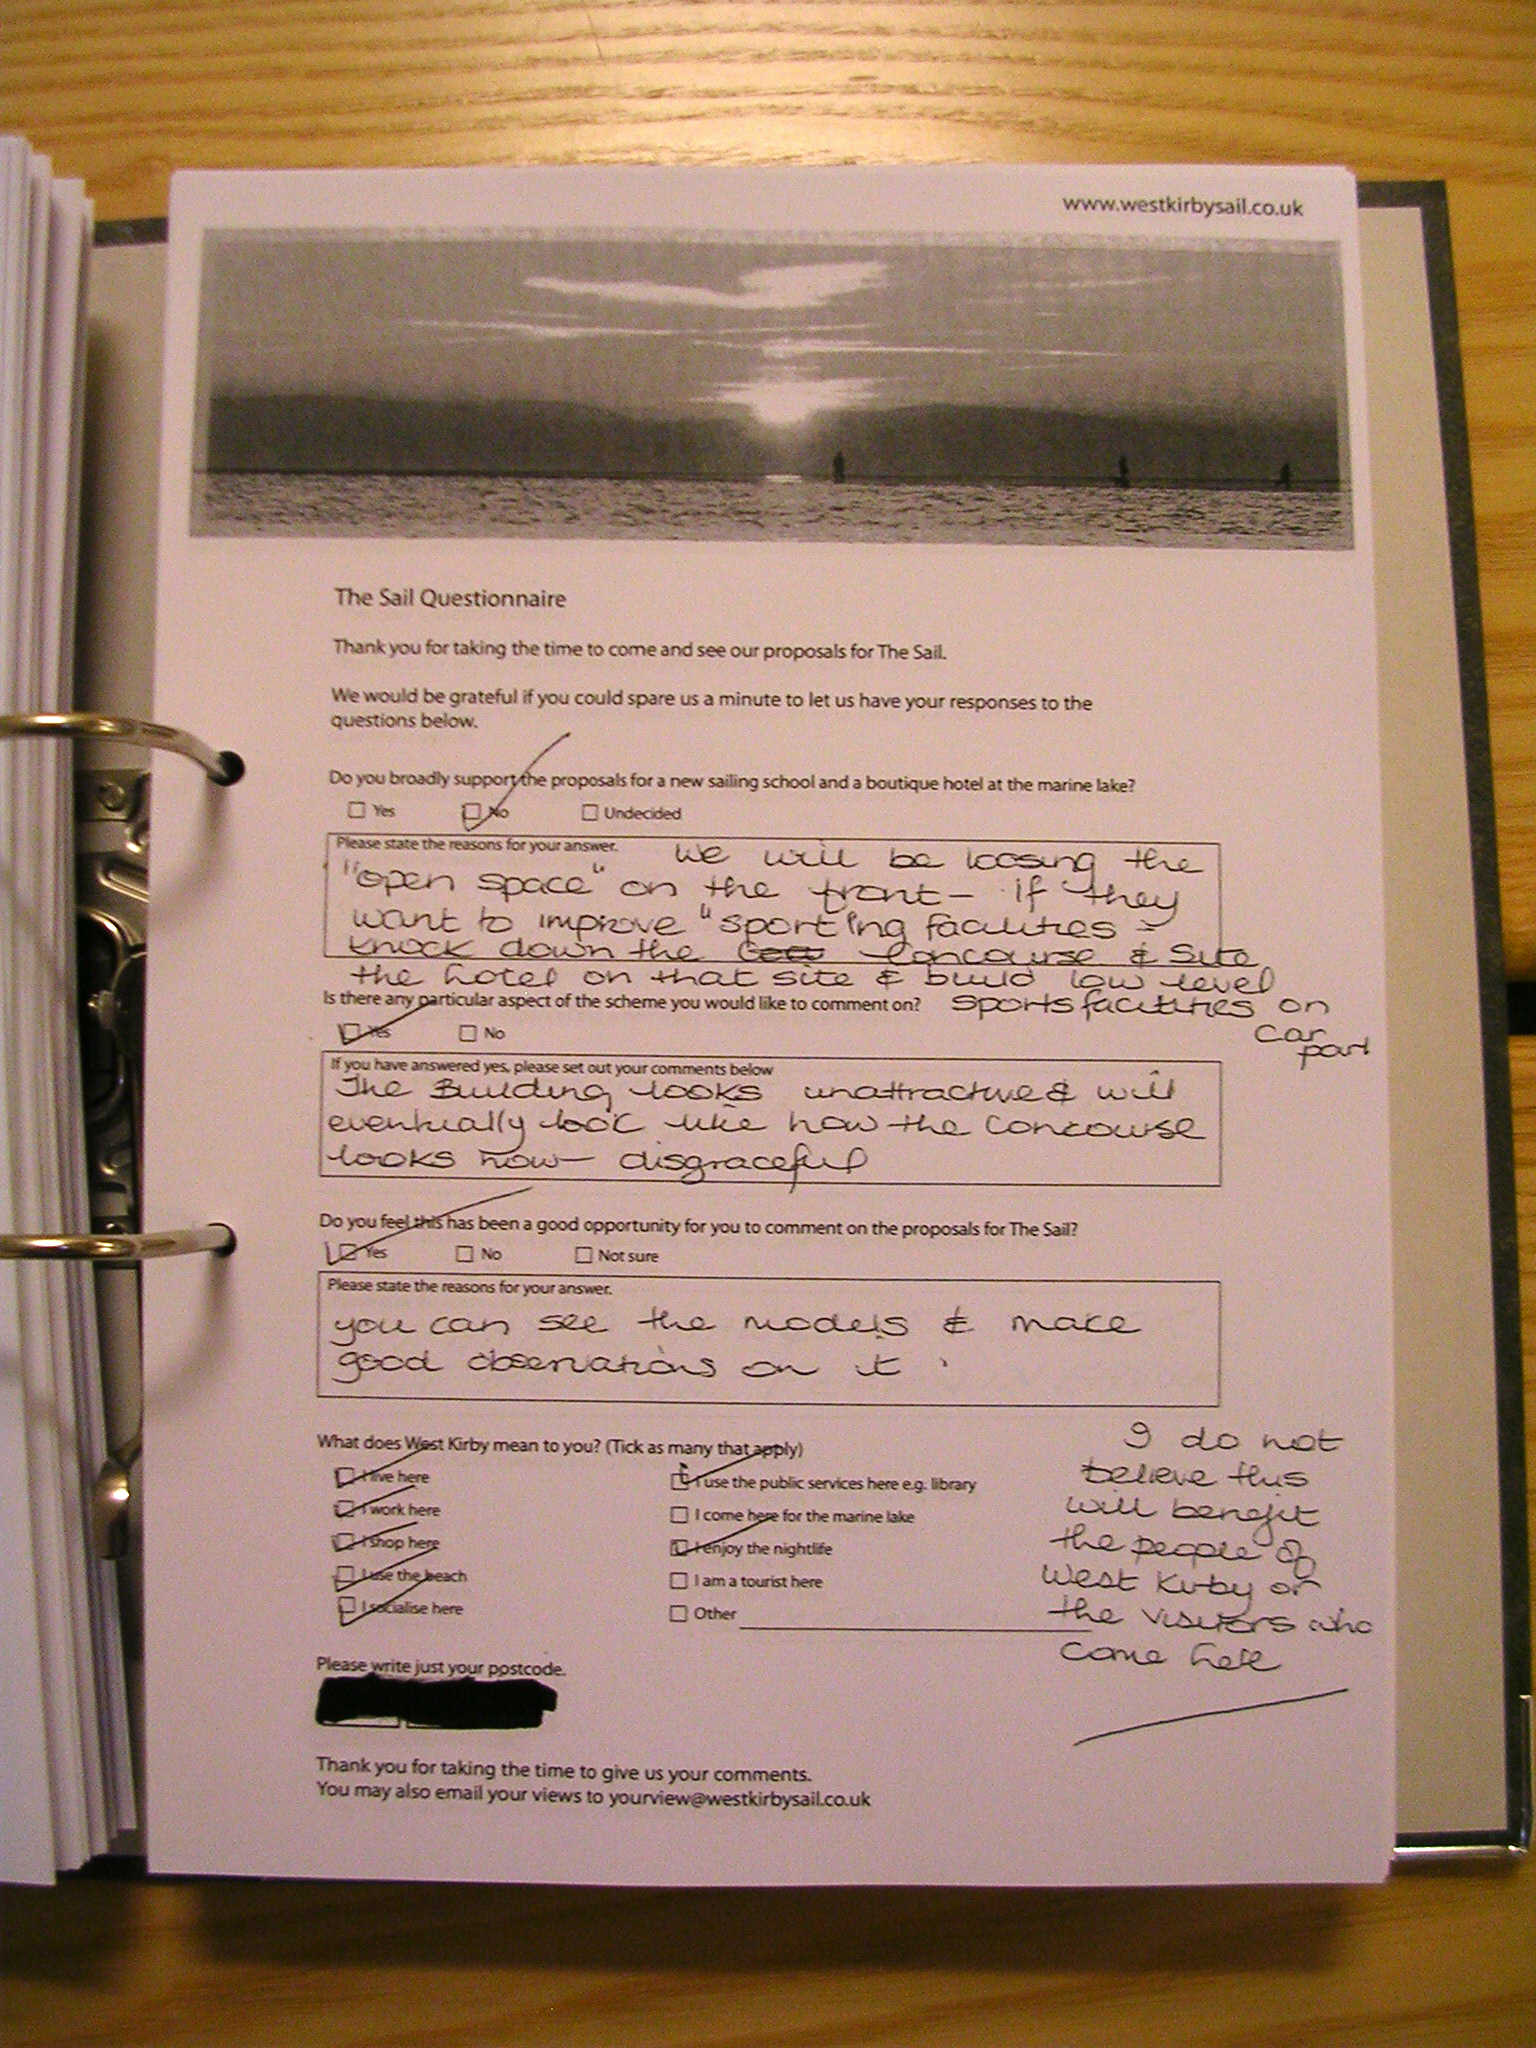 www.westkirbysail.co.uk
The Sail Questionnaire
Thank you for taking the time to come and see our proposals for The Sail.
We would be grateful if you could spare us a minute to let us have your responses to the
questions below.
Do you broadly support the proposals for a new sailing school and a boutique hotel at the marine lake?
Yes No Undecided
Please state the reasons for your answer. We will be loosing the
"open space" on the front - if they
want to improve "sporting facilities -
knock down the Concourse & Site
the hotel on that site & build low level
Is there any particular aspect of the scheme you would like to comment on? sports facilities on
Yes No car
part
If you have answered yes, please set out your comments below
The Building looks unattractive & will
eventually look like how the Concourse
looks now - disgraceful
Do you feel this has been a good opportunity for you to comment on the proposals for The Sail?
Yes No Not sure
Please state the reasons for your answer.
you can see the models & make
good observations on it.
What does West Kirby mean to you? (Tick as many that apply)
I live here I use the public services here e.g. library
I work here I come here for the marine lake
I shop here I enjoy the nightlife
I use the beach I am a tourist here
I socialise here Other
I do not
believe this
will benefit
the people of
West Kirby or
the visitors who
come here
Please write just your postcode.
Thank you for taking the time to give us your comments.
You may also email your views to yourview@westkirbysail.co.uk